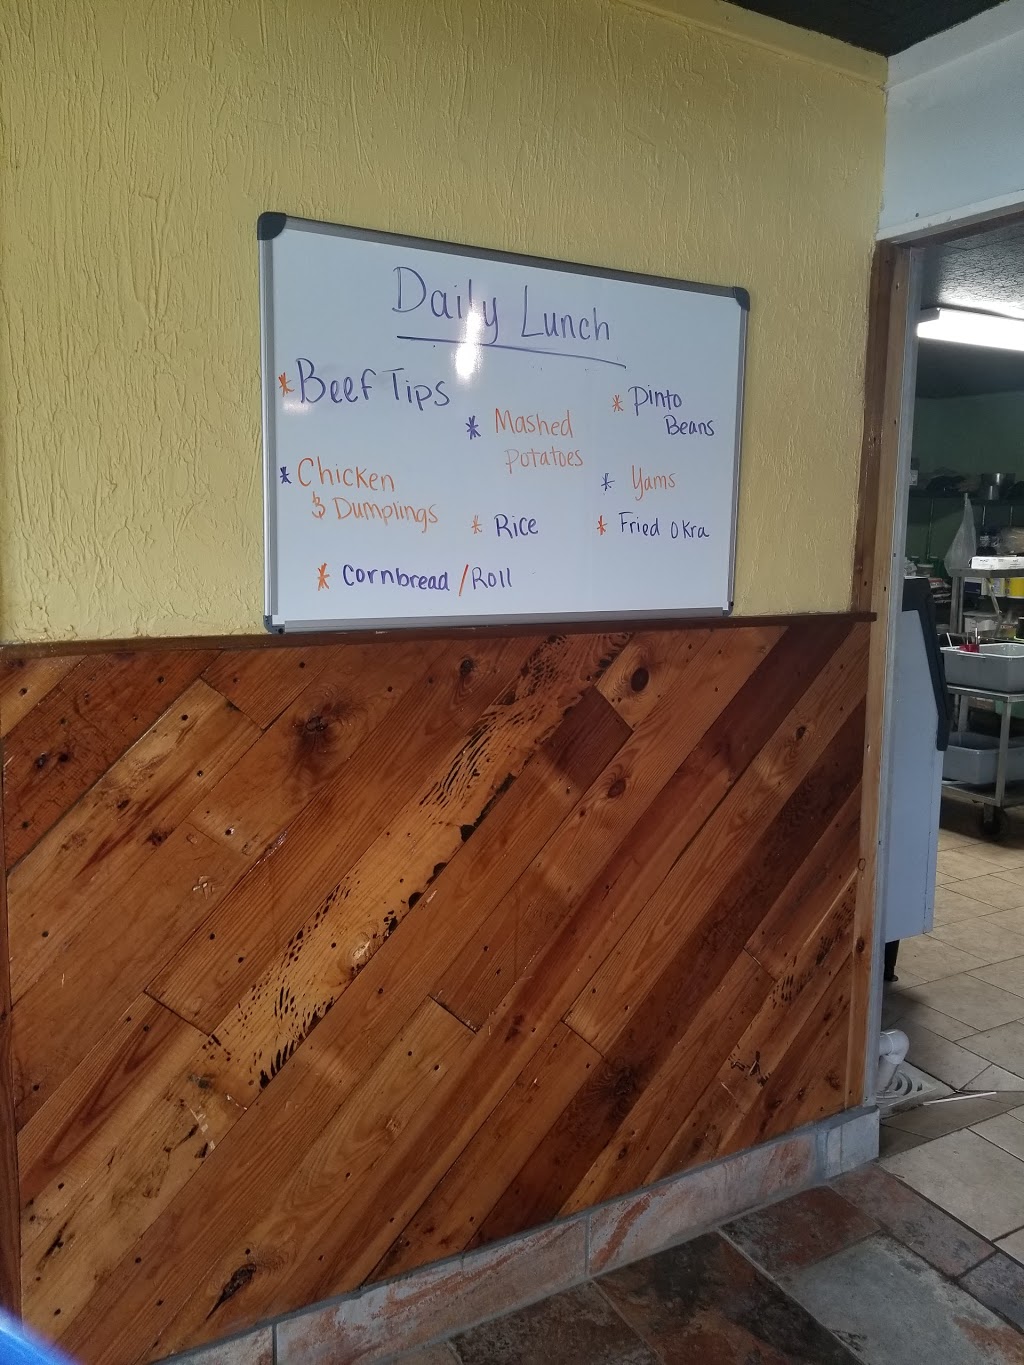 Daily Lunch
* Beef Tips
* Chicken
& Dumplings
* Mashed
Potatoes
* Rice
* Pinto
Beans
* Yams
* Fried Okra
* Cornbread / Roll